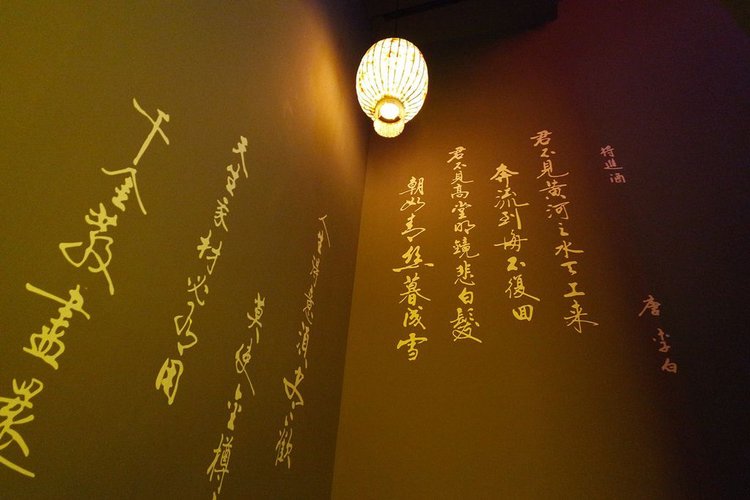 将進酒
唐 李白
君不見黄河之水天上来
奔流到海不復回
君不見高堂明鏡悲白髮
朝如青絲暮成雪
人生得意須盡歡
莫使金樽
天生我材必有用
千金散盡還